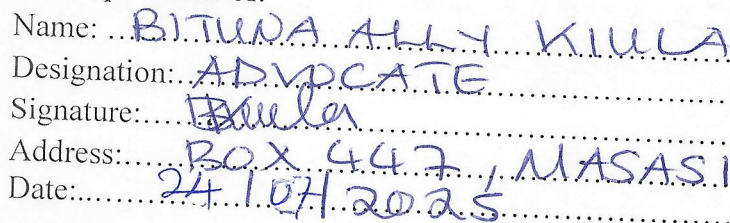 Name: BITUNA ALLY KIULA
Designation: ADVOCATE
Signature: BKiula
Address: BOX 447, MASASI
Date: 24/07/2025